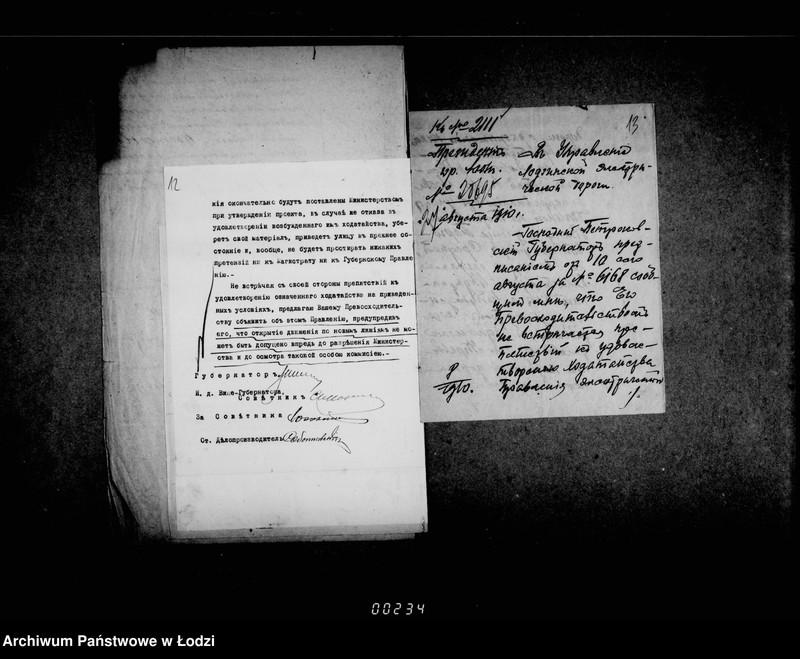 12
нія окончательно будутъ поставлены Министерствомъ
при утвержденіи проекта, въ случаѣ же отказа въ
удовлетвореніи возбужденнаго имъ ходатайства, убе-
ретъ свой матеріалъ, приведетъ улицу въ прежнее со-
стояніе и, вообще, не будетъ простирать никакихъ
претензій ни къ Магистрату ни къ Губернскому Правле-
нію.-
Не встрѣчая съ своей стороны препятствій къ
удовлетворенію означеннаго ходатайства на приведен-
ныхъ условіяхъ, предлагаю Вашему Превосходитель-
ству объявить объ этомъ Правленію, предупредивъ
его, что открытіе движенія по новымъ линіямъ не мо-
жетъ быть допущено впредь до разрѣшенія Министер-
ства и до осмотра таковой особою комиссіею.-
Губернаторъ
И. д. Вице-Губернатора,
Совѣтникъ
За Совѣтника
Ст. Дѣлопроизводитель
13
Къ № 2111
Президентъ
гор. Лодзи.
№ 25695
августа 1910 г.
Въ Управленіе
Лодзинской электри-
ческой дороги.
Господинъ Петроков-
скій Губернаторъ пред-
писаніемъ отъ 10 сего
августа за № 6168 сооб-
щилъ мнѣ, что Его
Превосходительство
не встрѣчается пре-
пятствій къ удовле-
творенію ходатайства
Правленія электрической
1910.
00234
Archiwum Państwowe w Łodzi